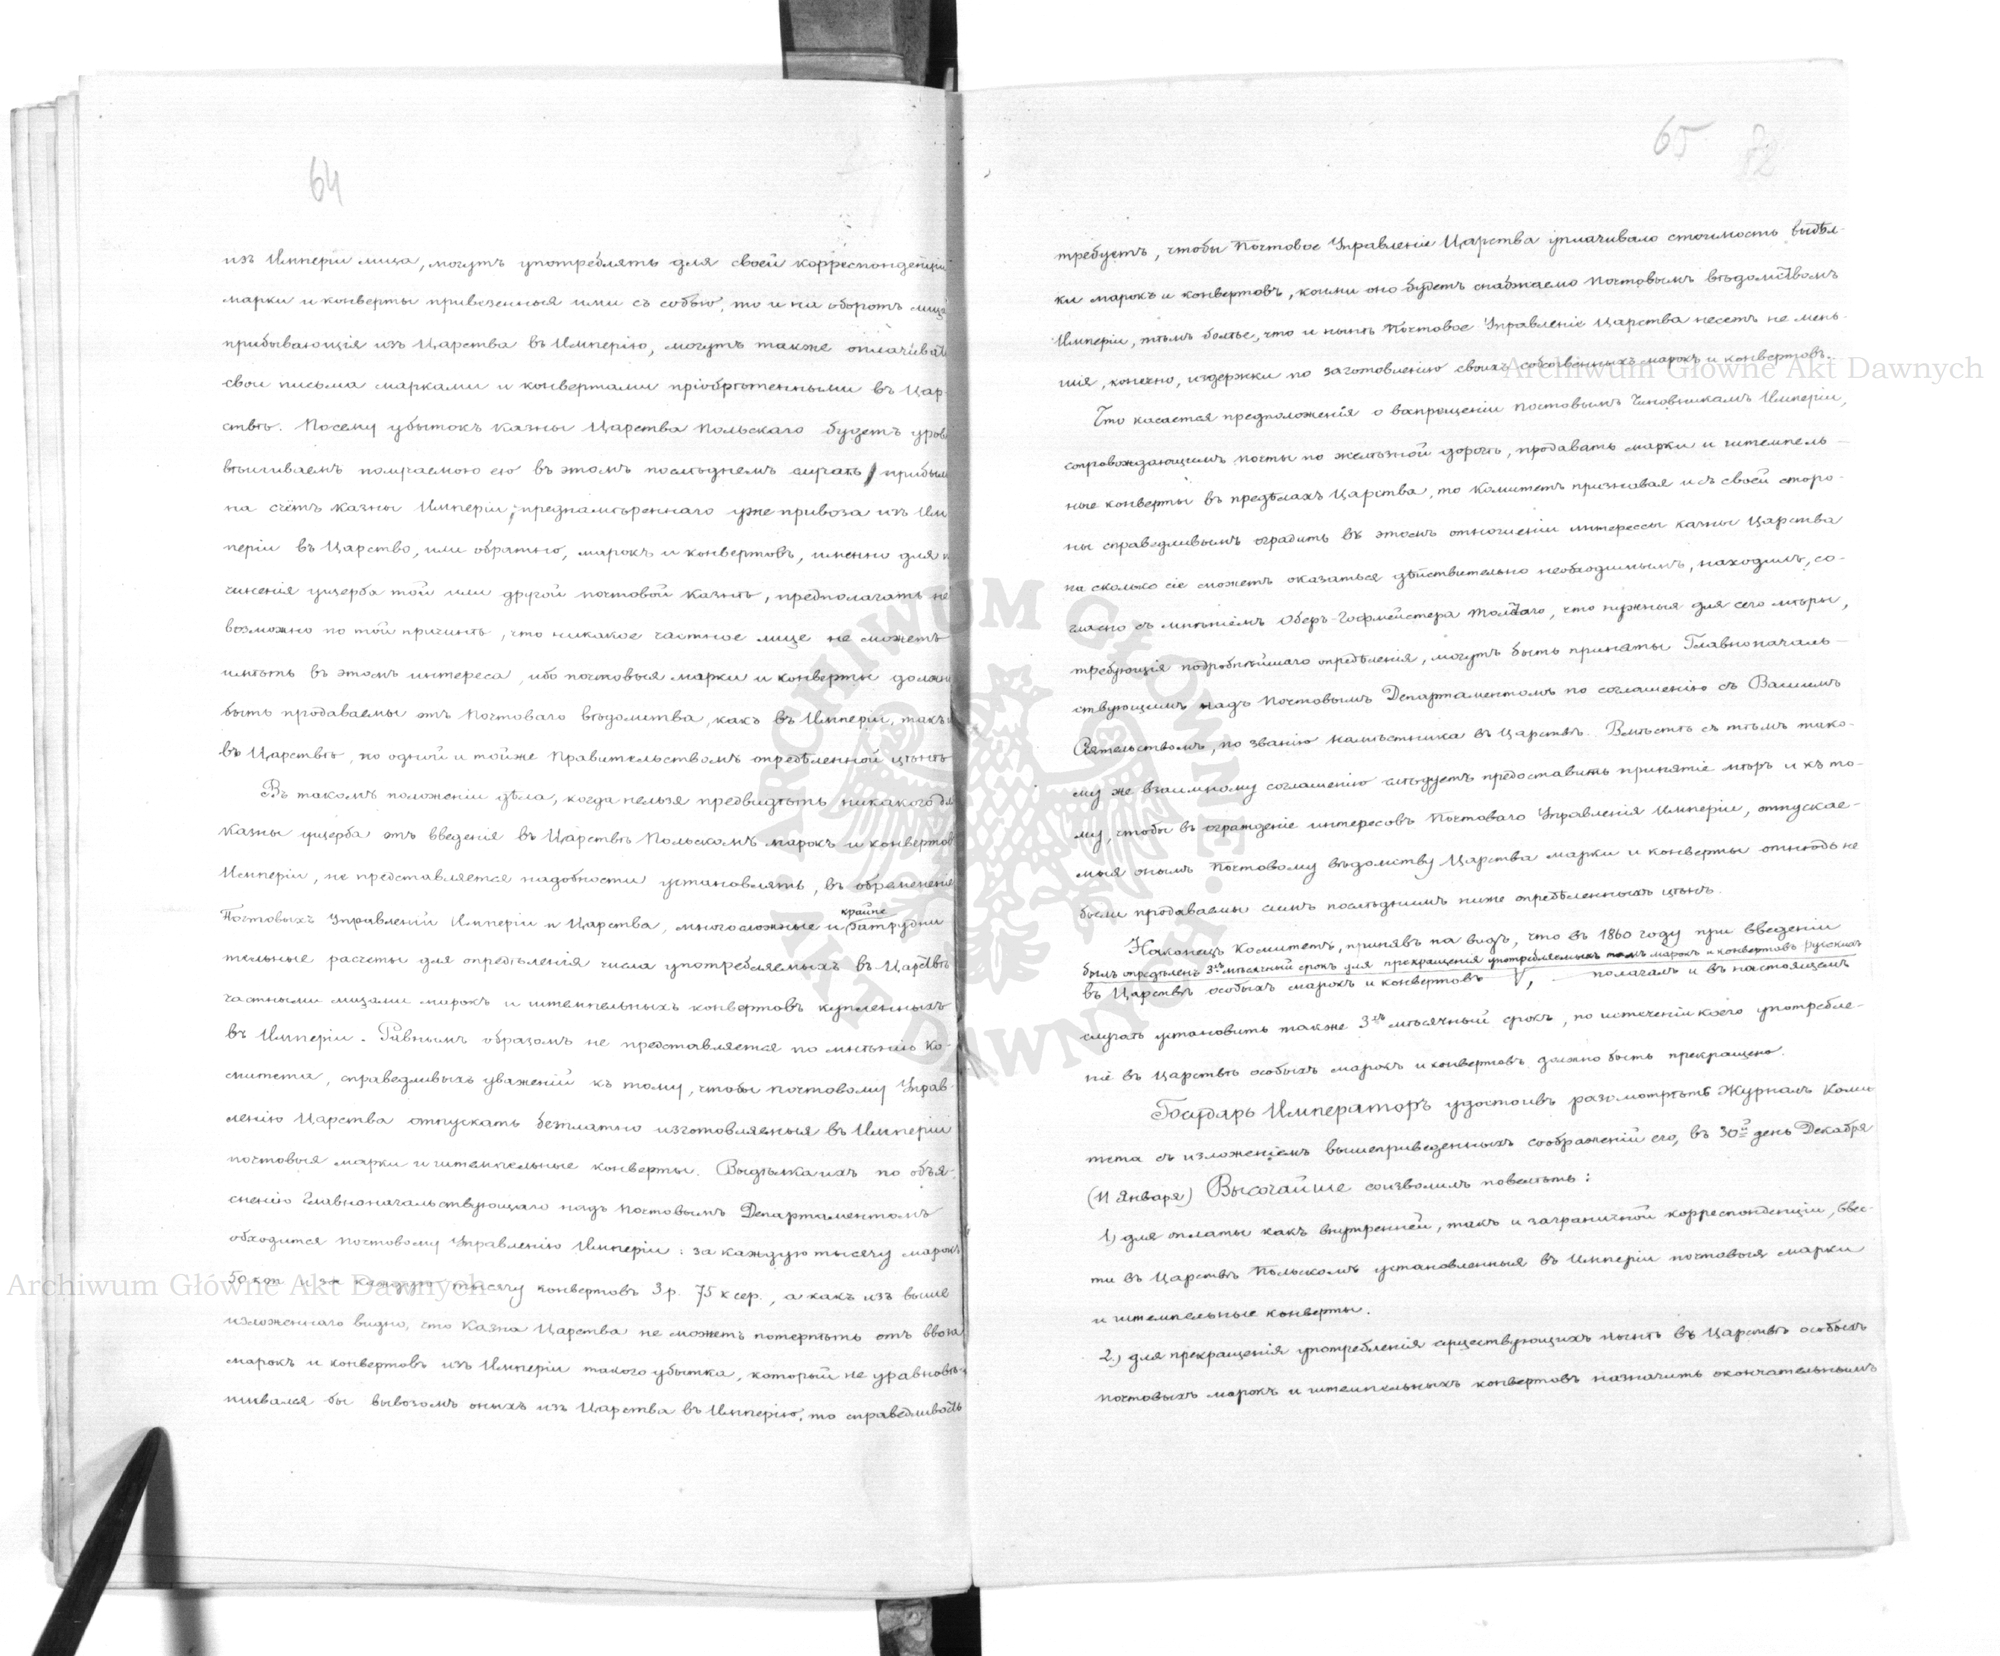 64
изъ Имперіи лица, могутъ употреблять для своей корреспонденціи
марки и конверты привезенныя ими съ собою, то и на оборотъ лица
прибывающія изъ Царства въ Имперію, могутъ также оплачивать
свои письма марками и конвертами пріобрѣтенными въ Цар-
ствѣ. Посему убытокъ казны Царства Польскаго будетъ урав
вѣшиваемъ получаемою ею въ этомъ послѣднемъ случаѣ прибыл
на счетъ казны Имперіи; преднамѣреннаго уже привоза изъ Им
періи въ Царство, или обратно, марокъ и конвертовъ, именно для
чиненія ущерба той или другой почтовой казнѣ, предполагать не
возможно по той причинѣ, что никакое частное лице не можетъ
имѣть въ этомъ интереса, ибо почтовыя марки и конверты должн
быть продаваемы отъ Почтоваго вѣдомства, какъ въ Имперіи, такъ
въ Царствѣ, по одной и тойже Правительствомъ опредѣленной цѣнѣ
Въ такомъ положеніи дѣла, когда нельзя предвидѣть никакого дл
казны ущерба отъ введенія въ Царствѣ Польскомъ марокъ и конвертов
Имперіи, не представляется надобности установлять, въ обремененіе
Почтовыхъ Управленій Имперіи и Царства, многосложные и крайне затрудни
тельные расчеты для опредѣленія числа употребляемыхъ въ Царствѣ
частными лицами марокъ и штемпельныхъ конвертовъ купленныхъ
въ Имперіи. Равнымъ образомъ не представляется по мнѣнію Ко-
митета, справедливыхъ уваженій къ тому, чтобы почтовому Управ-
ленію Царства отпускать безплатно изготовляемыя въ Имперіи
почтовыя марки и штемпельные конверты. Выдѣлка ихъ по объя-
сненію Главноначальствующаго надъ Почтовымъ Департаментомъ
обходится почтовому Управленію Имперіи: за каждую тысячу марокъ
50 коп и за каждую тысячу конвертовъ 3 р. 75 к сер., а какъ изъ выше
изложеннаго видно, что Казна Царства не можетъ потерпѣть отъ ввоза
марокъ и конвертовъ изъ Имперіи такого убытка, который не уравновѣ-
шивался бы вывозомъ оныхъ изъ Царства въ Имперію, то справедливость
65
требуетъ, чтобы Почтовое Управленіе Царства уплачивало стоимость выдѣл-
ки марокъ и конвертовъ, коими оно будетъ снабжаемо Почтовымъ вѣдомствомъ
Имперіи, тѣмъ болѣе, что и нынѣ Почтовое Управленіе Царства несетъ не мень-
шія, конечно, издержки по заготовленію своихъ собственныхъ марокъ и конвертовъ.
Что касается предположенія о запрещеніи почтовымъ Чиновникамъ Имперіи,
сопровождающимъ почты по желѣзной дорогѣ, продавать марки и штемпель-
ные конверты въ предѣлахъ Царства, то Комитетъ признавая и съ своей сторо-
ны справедливымъ оградить въ этомъ отношеніи интерессы казны Царства
на сколько сіе можетъ оказаться дѣйствительно необходимымъ, находилъ, со-
гласно съ мнѣніемъ Оберъ-Гофмейстера Толстаго, что нужныя для сего мѣры,
требующія подробнѣйшаго опредѣленія, могутъ быть приняты Главноначаль-
ствующимъ надъ Почтовымъ Департаментомъ по соглашенію съ Вашимъ
Сіятельствомъ, по званію Намѣстника въ Царствѣ. Вмѣстѣ съ тѣмъ тако-
му же взаимному соглашенію слѣдуетъ предоставить принятіе мѣръ и къ то-
му, чтобы въ огражденіе интересовъ Почтоваго Управленія Имперіи, отпускае-
мыя онымъ Почтовому вѣдомству Царства марки и конверты отнюдь не
были продаваемы симъ послѣднимъ ниже опредѣленныхъ цѣнъ.
Наконецъ Комитетъ, принявъ на видъ, что въ 1860 году при введеніи
былъ опредѣленъ 3хъ мѣсячный срокъ для прекращенія употребляемыхъ тамъ марокъ и конвертовъ Русскихъ
въ Царствѣ особыхъ марокъ и конвертовъ, полагалъ и въ настоящемъ
случаѣ установить также 3хъ мѣсячный срокъ, по истеченіи коего употребле-
ніе въ Царствѣ особыхъ марокъ и конвертовъ должно быть прекращено.
Государь Императоръ удостоивъ разсмотрѣть Журналъ Коми
тета съ изложеніемъ вышеприведенныхъ соображеній его, въ 30й день Декабря
(11 Января) Высочайше соизволилъ повелѣть:
1) для оплаты какъ внутренней, такъ и заграничной корреспонденціи, ввес-
ти въ Царствѣ Польскомъ установленныя въ Имперіи почтовыя марки
и штемпельные конверты.
2.) для прекращенія употребленія существующихъ нынѣ въ Царствѣ особыхъ
почтовыхъ марокъ и штемпельныхъ конвертовъ назначить окончательнымъ
Archiwum Główne Akt Dawnych
Archiwum Główne Akt Dawnych
ARCHIWUM GŁÓWNE AKT DAWNYCH